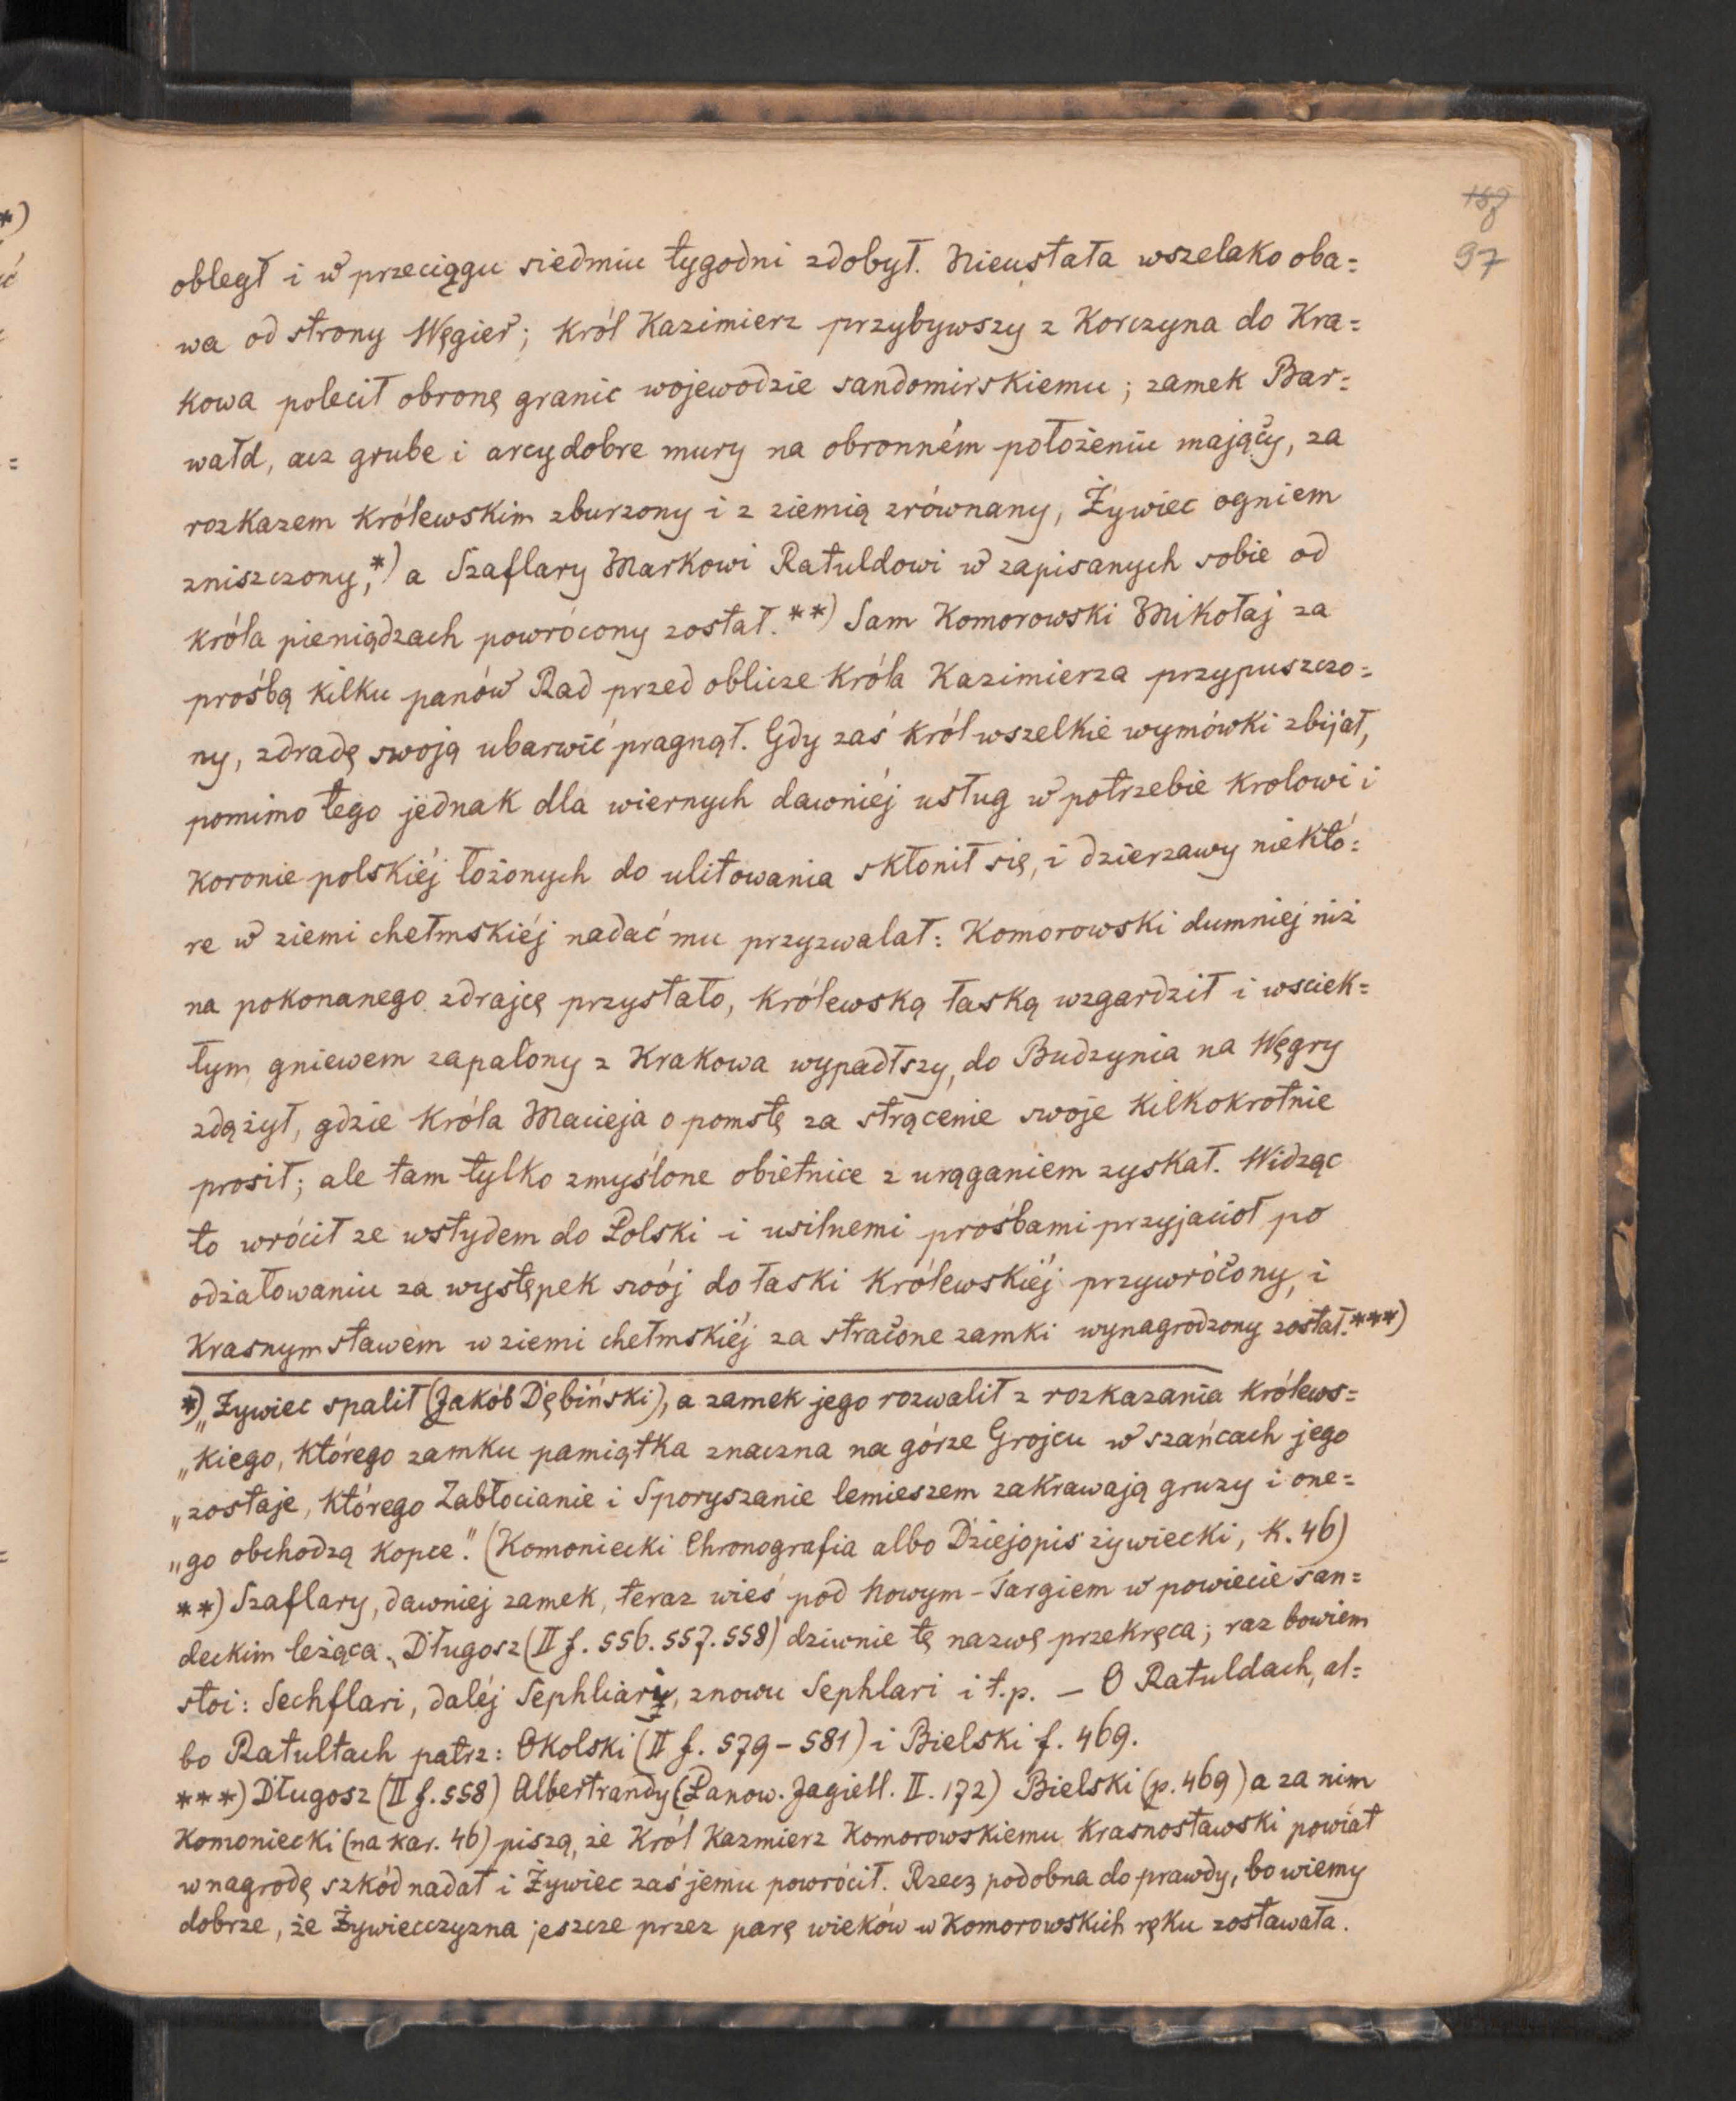 187
97
obległ i w przeciągu siedmiu tygodni zdobył. Nieustała wszelako oba=
wa od strony Węgier; Król Kazimierz przybywszy z Korczyna do Kra=
kowa polecił obronę granic wojewodzie sandomirskiemu; zamek Bar=
wałd, acz grube i arcydobre mury na obronném położeniu mający, za
rozkazem królewskim zburzony i z ziemią zrównany, Żywiec ogniem
zniszczony,*) a Szaflary Markowi Ratuldowi w zapisanych sobie od
króla pieniądzach powrócony został.**) Sam Komorowski Mikołaj za
prośbą kilku panów Rad przed oblicze Króla Kazimierza przypuszczo=
ny, zdradę swoją ubarwić pragnął. Gdy zaś król wszelkie wymówki zbijał,
pomimo tego jednak dla wiernych dawniéj usług w potrzebie krolowi i
koronie polskiéj łożonych do ulitowania skłonił się, i dzierzawy niektó=
re w ziemi chełmskiéj nadać mu przyzwalał: Komorowski dumniej niż
na pokonanego zdrajcę przystało, królewską łaską wzgardził i wsciek=
łym gniewem zapalony z Krakowa wypadłszy, do Budzynia na Węgry
zdążył, gdzie króla Macieja o pomstę za strącenie swoje kilkokrotnie
prosił; ale tam tylko zmyślone obietnice z urąganiem zyskał. Widząc
to wrócił ze wstydem do Polski i usilnemi prośbami przyjacioł po
odżałowaniu za występek swój do łaski królewskiéj przywrócony, i
Krasnymstawem w ziemi chełmskiéj za stracone zamki wynagrodzony został.***)
*) „Żywiec spalił (Jakób Dębiński), a zamek jego rozwalił z rozkazania królews=
„kiego, którego zamku pamiątka znaczna na górze Grojcu w szańcach jego
„zostaje, którego Zabłocianie i Sporyszanie lemieszem zakrawają gruzy i one=
„go obchodzą kopce." (Komoniecki Chronografia albo Dziejopis żywiecki, K. 46)
**) Szaflary, dawniej zamek, teraz wieś pod Nowym-Targiem w powiecie san=
deckim leżąca. Długosz (II f. 556. 557. 558) dziwnie tę nazwę przekręca; raz bowiem
stoi: Sechflari, daléj Sephliary, znowu Sephlari i t.p. — O Ratuldach, al=
bo Ratułtach patrz: Okolski (II f. 579–581) i Bielski f. 469.
***) Długosz (II f. 558) Albertrandy (Panow. Jagiell. II. 172) Bielski (p. 469) a za nim
Komoniecki (na kar. 46) piszą, że Król Kazmierz Komorowskiemu krasnostawski powiat
w nagrodę szkód nadał i Żywiec zaś jemu powrócił. Rzecz podobna do prawdy, bo wiemy
dobrze, że Żywiecczyzna jeszcze przez parę wieków w Komorowskich ręku zostawała.